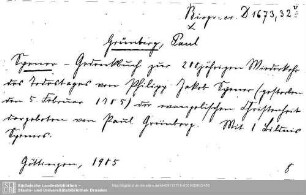 Biogr. er. D 1673, 32
Grünberg, Paul
Spener-Gedenkbuch zur 200jährigen Wiederkehr
des Todestages von Philipp Jakob Spener (gestorben
den 5 Februar 1705) der evangelischen Christenheit
dargeboten von Paul Grünberg Mit 1 Bildnis
Speners.
Göttingen, 1905
8
Sächsische Landesbibliothek -
Staats- und Universitätsbibliothek Dresden